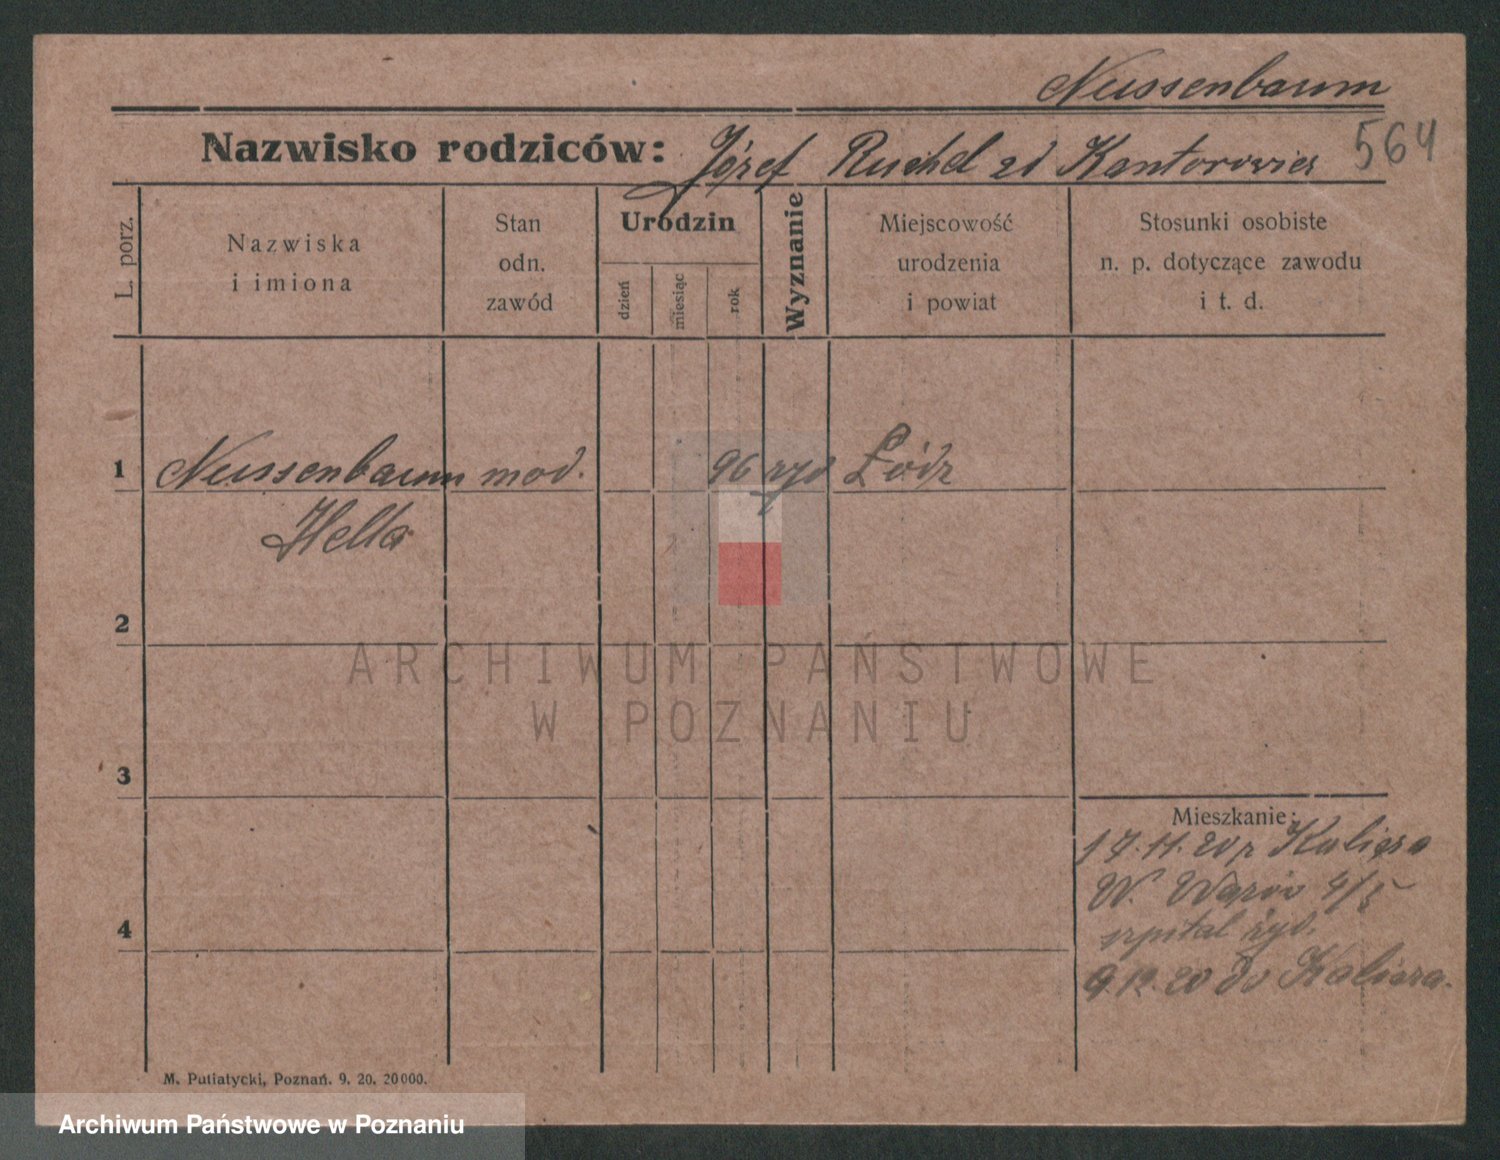 Nussenbaum
Nazwisko rodziców: Józef Ruchel zd Kantorowicz 564
L. porz.
Nazwiska
i imiona
Stan
odn.
zawód
Urodzin
dzień
miesiąc
rok
Wyznanie
Miejscowość
urodzenia
i powiat
Stosunki osobiste
n. p. dotyczące zawodu
i t. d.
1 Nussenbaum mod. 96 żyd Łódz
Hella
2
ARCHIWUM PAŃSTWOWE
W POZNANIU
3
Mieszkanie:
17.11.20 z Kalisza
W. 4/5
4
szpital żyd.
9.12.20 do Kalisza.
M. Putiatycki, Poznań. 9. 20. 20000.
Archiwum Państwowe w Poznaniu